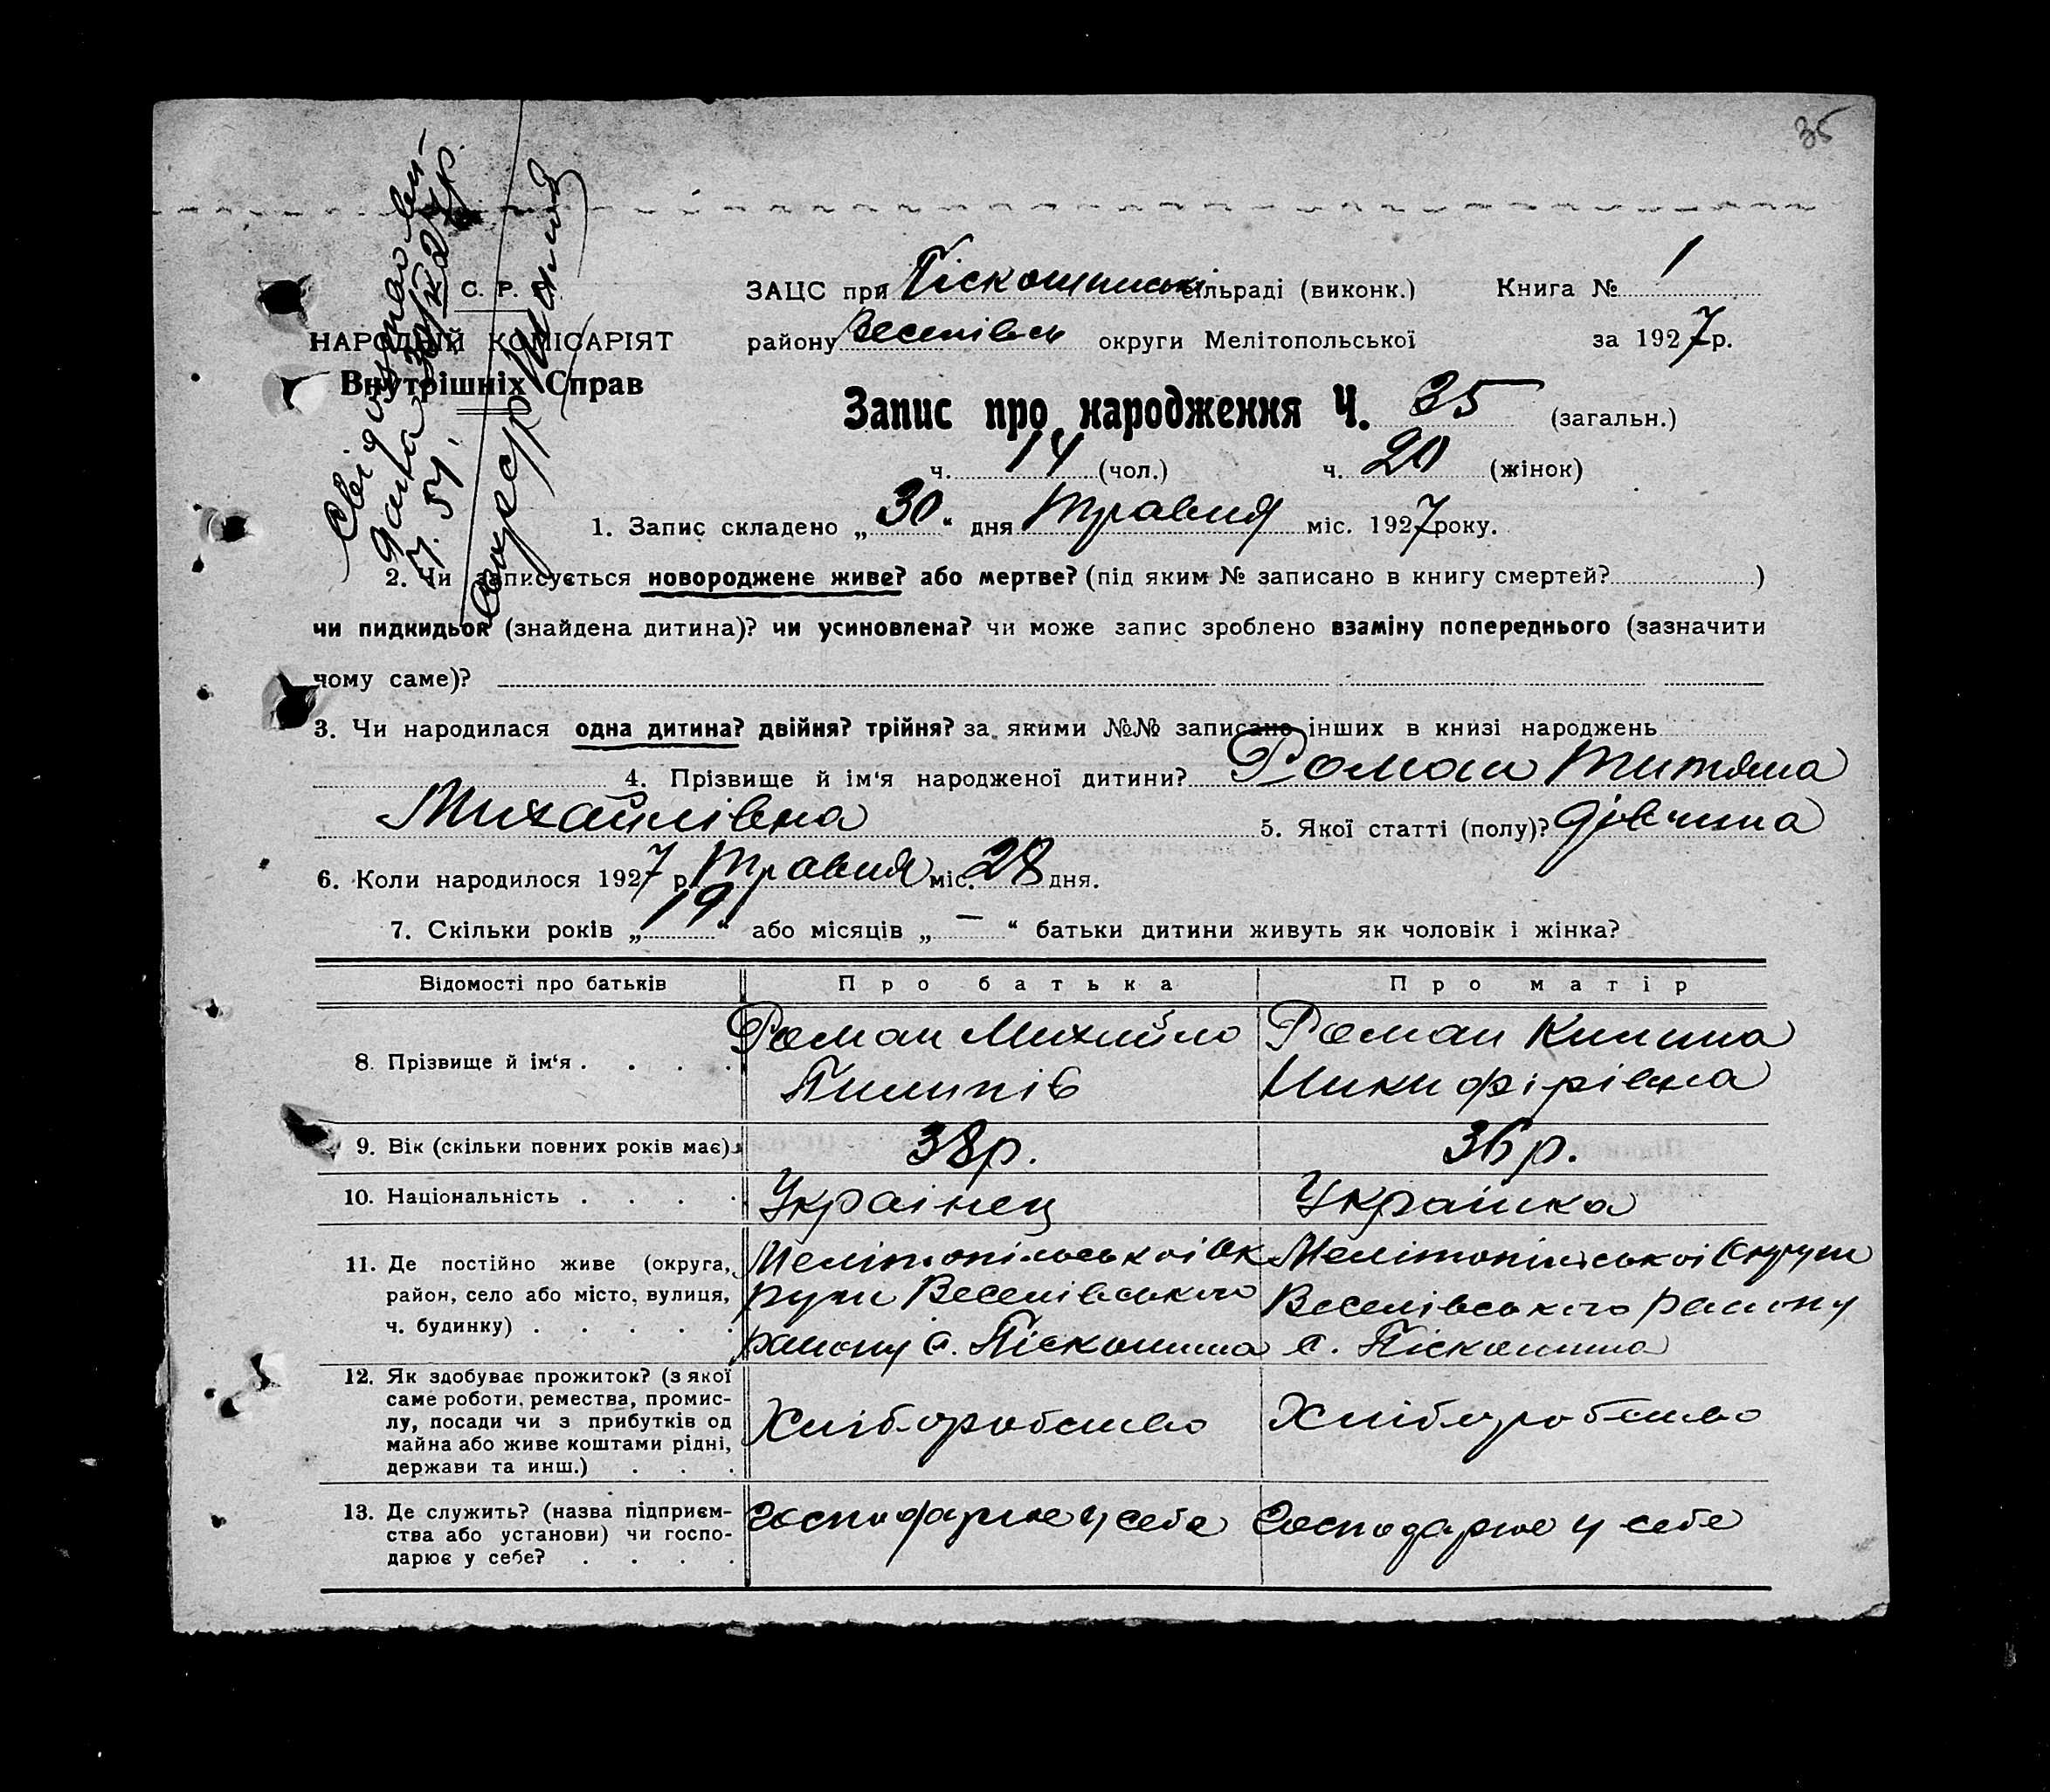 35
Свідоцтво ви-
дана 30/
7. 54.
С. Р. Р.
НАРОДНІЙ КОМІСАРІЯТ
Внутрішніх Справ
ЗАЦС при Піскошинські сільраді (виконк.) Книга № 1
району Веселівськ округи Мелітопольської за 1927 р.
Запис про народження Ч. 35 (загальн.)
ч. 14 (чол.) ч. 20 (жінок)
1. Запис складено „30“ дня Травня міс. 1927 року.
2. Чи записується новороджене живе? або мертве? (під яким № записано в книгу смертей? )
чи пидкидьок (знайдена дитина)? чи усиновлена? чи може запис зроблено взаміну попереднього (зазначити
чому саме)?
3. Чи народилася одна дитина? двійня? трійня? за якими №№ записано інших в книзі народжень
4. Прізвище й ім‘я народженої дитини? Роман Титяна
Михайлівна 5. Якої статті (полу)? дівчина
6. Коли народилося 1927 р. Травня міс. 28 дня.
7. Скільки років „19“ або місяців „—“ батьки дитини живуть як чоловік і жінка?
Відомості про батьків Про батька Про матір
8. Прізвище й ім‘я . . . . Роман Михайло Роман Килина
Пилипів Никифірівна
9. Вік (скільки повних років має) 38 р. 36 р.
10. Національність . . . . Украінец Украінка
11. Де постійно живе (округа, Мелітопільськоі Ок Мелітопільськоі Округи
район, село або місто, вулиця, руги Веселівського Веселівського району
ч. будинку) . . . . . району с. Піскошина с. Піскошина
12. Як здобуває прожиток? (з якої
саме роботи, ремества, промис-
лу, посади чи з прибутків од Хліборобство Хліборобство
майна або живе коштами рідні,
держави та инш.) . . .
13. Де служить? (назва підприєм- Господарює у себе Господарює у себе
ства або установи) чи госпо-
дарює у себе? . . . .